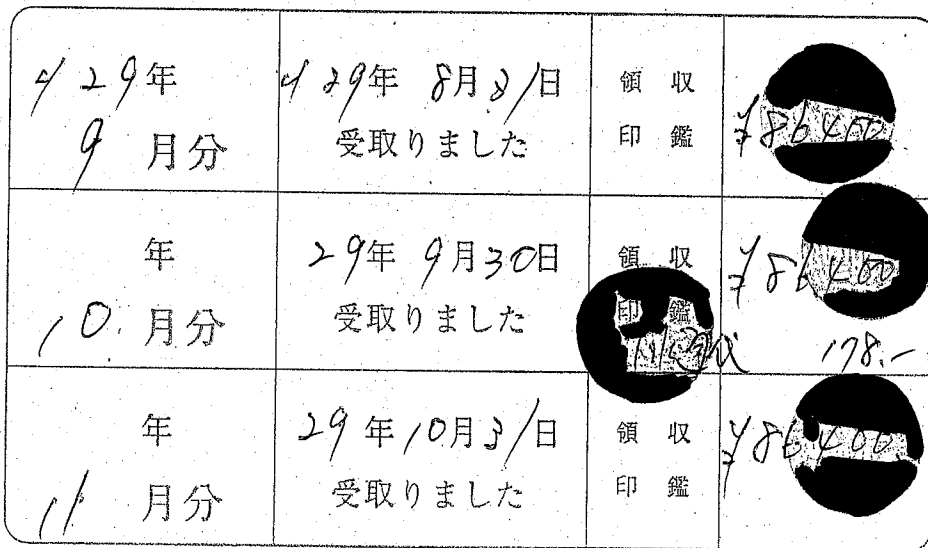 H29年
9月分
H29年 8月31日
受取りました
領収
印鑑
¥86400
年
10月分
29年 9月30日
受取りました
領収
印鑑
¥86400
178.-
年
11月分
29年10月31日
受取りました
領収
印鑑
¥86400